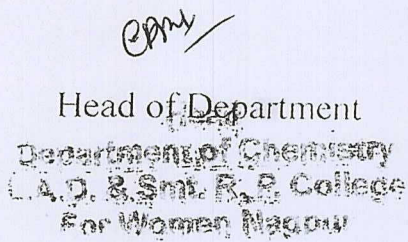 Head of Department
Head
Department of Chemistry
L.A.D. & Smt. R. P. College
For Women Nagpur